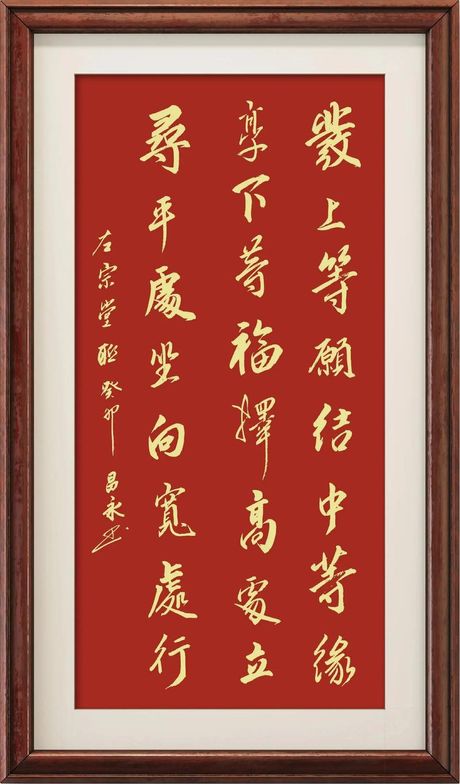 發上等願結中等緣
享下等福擇高處立
尋平處坐向寬處行
左宗堂聯癸卯昌永书